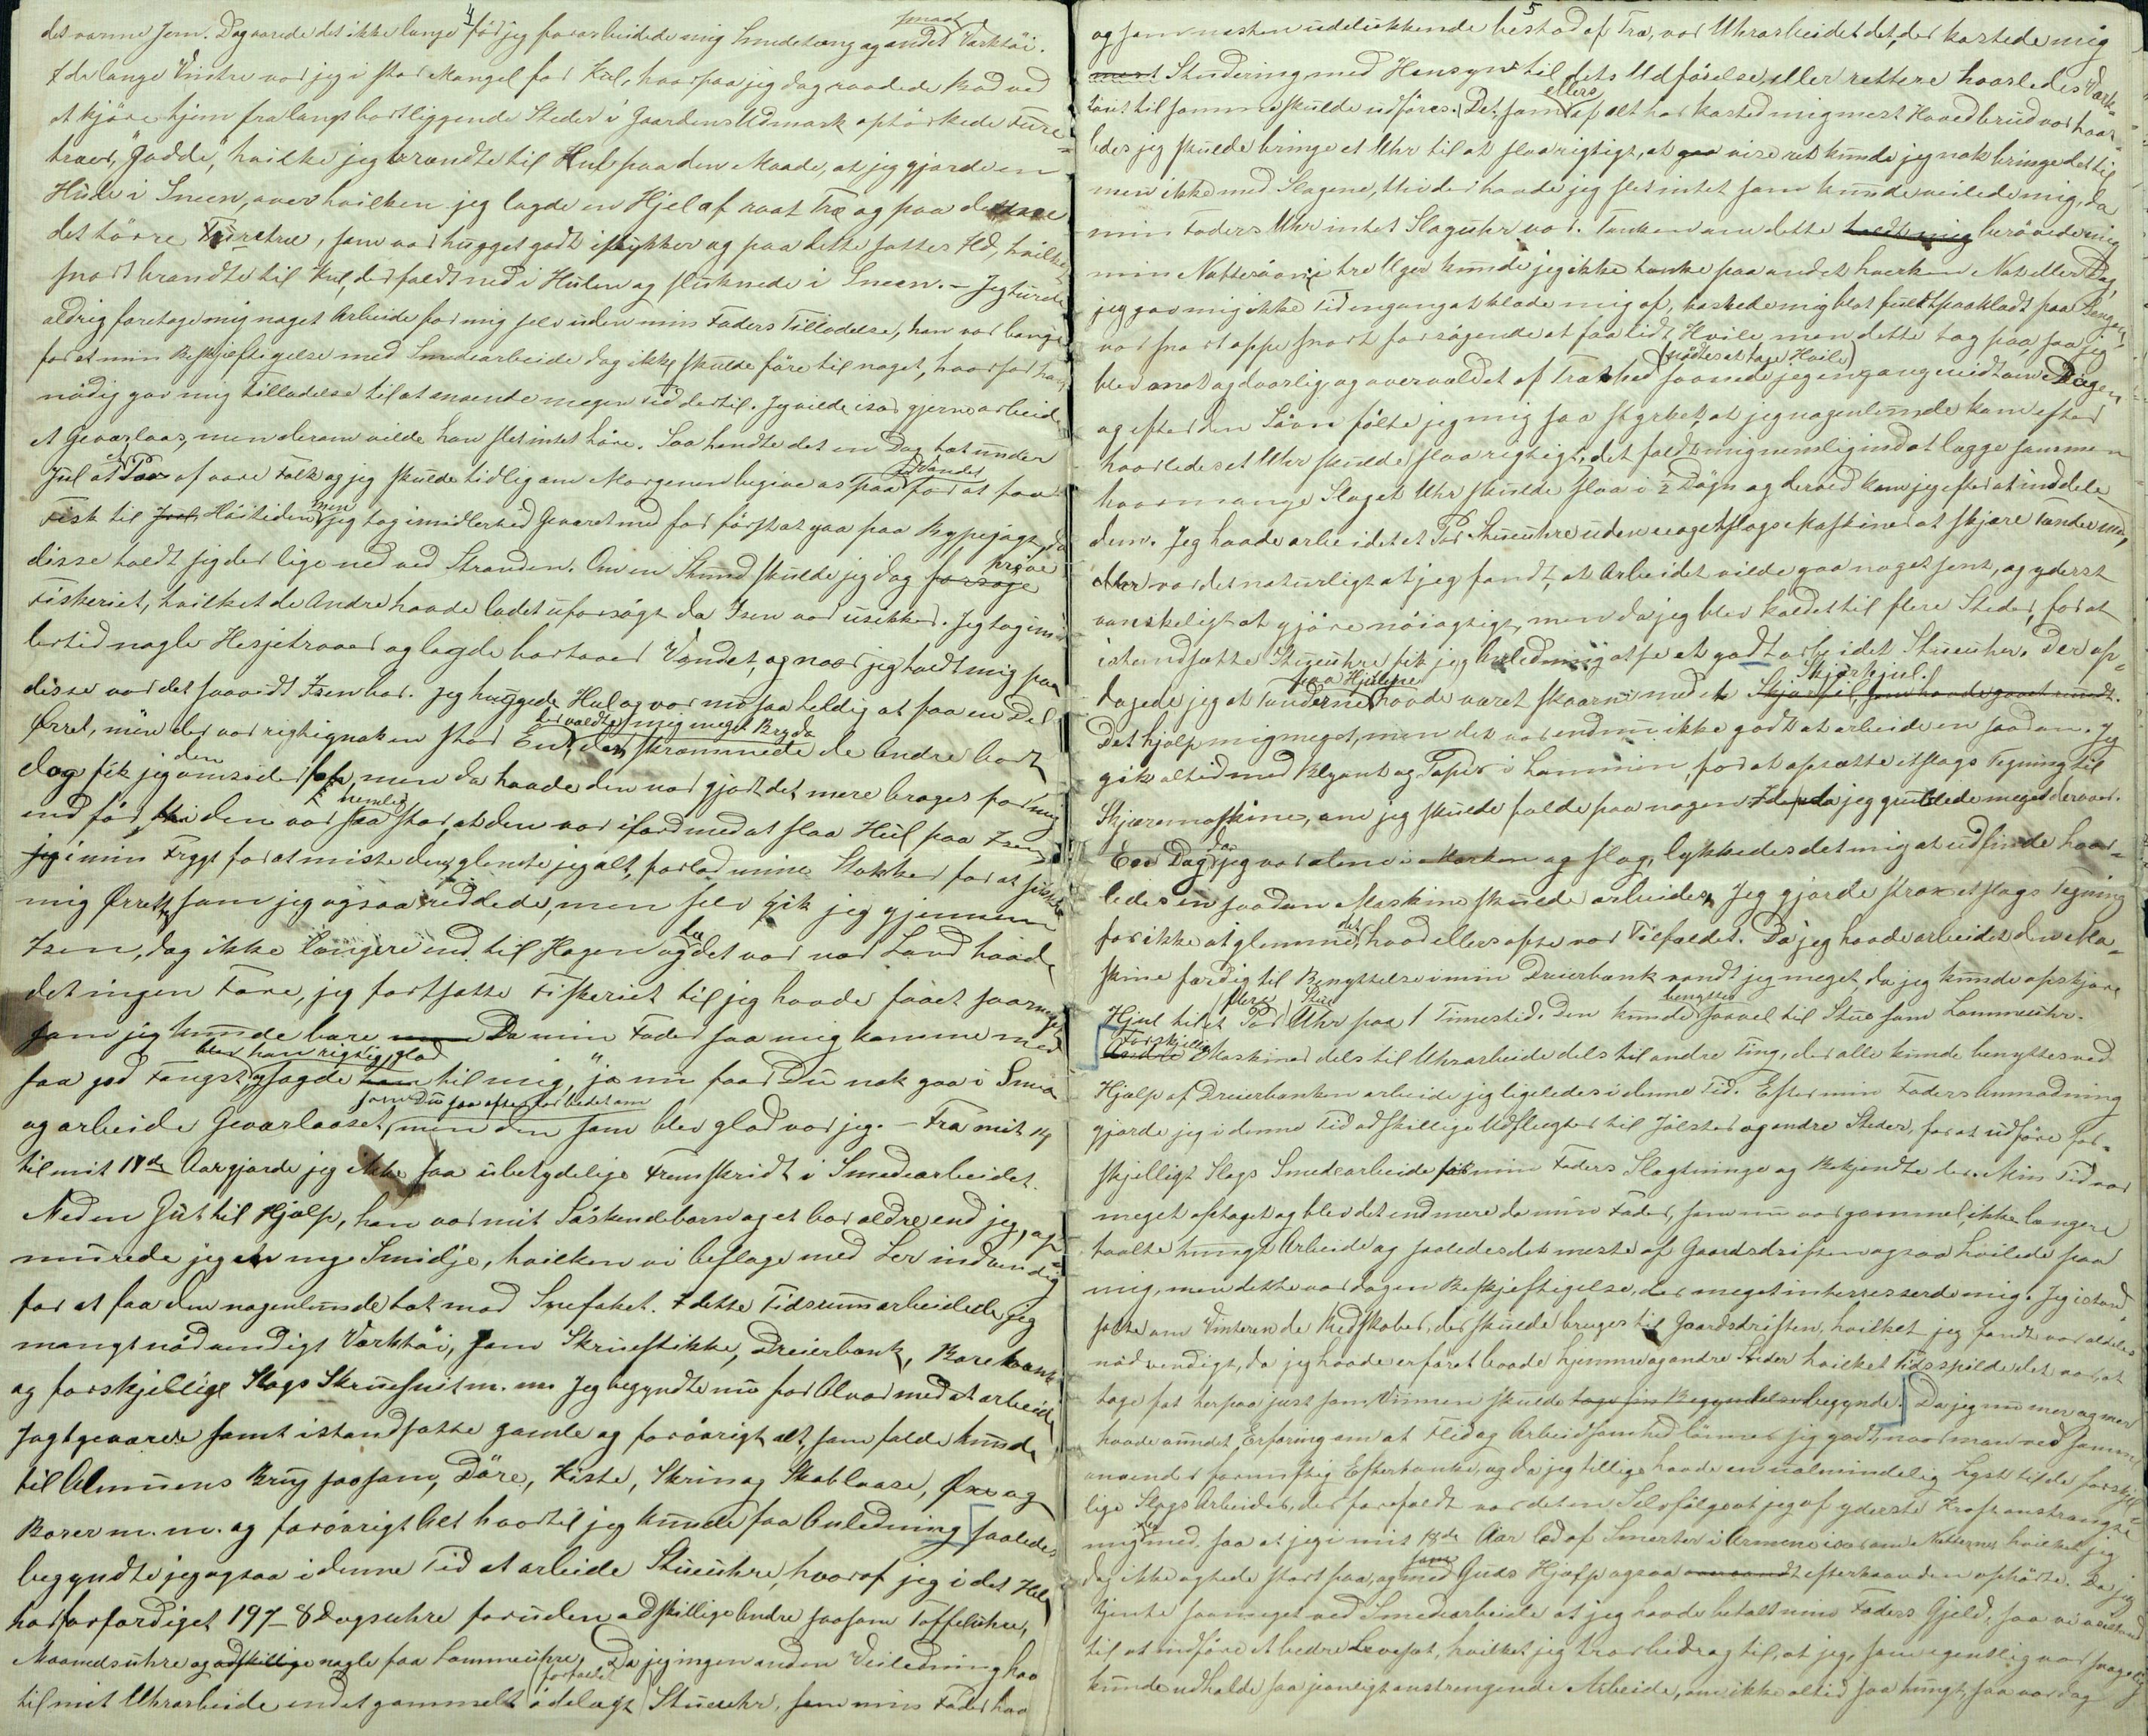 4
det varme Jern. Dog varede det ikke længe før jeg forarbeidede mig Smedetang og andet smaat Værktöi.
I de lange Vintre var jeg i stor Mangel for Kul, hvorfor jeg dog raadede Bod ved
at kjöre hjem fra langt bortliggende Steder i Gaardens Udmark optörkede Fure-
træer, "Gadde", hvilke jeg brændte til Kul paa den Maade, at jeg gjorde en
Hule i Sneen, over hvilken jeg lagde en Hjel af raat Træ og paa denne
det törre Furetræ, som var hugget godt istykker og paa dette sattes Ild, hvilket
snart brændte til Kul, der faldt ned i Hulen og sluknede i Sneen. – Jeg turde
aldrig foretage mig noget Arbeide for mig selv uden min Faders Tilladelse, han var bange
for at min Beskjæftigelse med Smedearbeide dog ikke skulde före til noget, hvorfor han
nödig gav mig Tilladelse til at anvende megen Tid dertil. Jeg vilde især gjerne arbeide
et Geværlaas, men derom vilde han slet intet höre. Saa hendte det en Dag tæt under
Jul at Par af vore Folk og jeg skulde tidlig om Morgenen begive os paa et Vandet for at faa
Fisk til Jul Höitiden, men jeg tog imidlertid Geværet med for först at gaa paa Rypejagt, da
disse holdt sig der lige ned ved Stranden. Om en Stund skulde jeg dog forsøge pröve
Fiskeriet, hvilket de Andre havde ladet uforsögt da Isen var usikker. Jeg tog imid-
lertid nogle Hesjetraaer og lagde bortover Vandet, og naar jeg holdt mig paa
disse var det saavidt Isen bar. Jeg huggede Hul og var nu saa heldig at faa en Del
Örret, men der var rigtignok en stor En, der voldte mig meget Bryderi skræmmede de Andre bort
dog fik jeg den omsider fat, men da havde den nær gjort det mere broget for mig
end för, thi den var nemlig saa stor, at den var ifærd med at slaa Hul paa Isen
jeg i min Frygt for at miste den, glemte jeg alt, forlod mine Stokker for at sikkre
mig Örreten, som jeg ogsaa reddede, men selv gik jeg gjennem
Isen, dog ikke længere end til Hagen og da det var nær Land havde
det ingen Fare, jeg fortsatte Fiskeriet til jeg havde faaet saa meget
som jeg kunde bære. Da min Fader saa mig komme med
saa god Fangst, blev han rigtig glad og sagde han til mig, "ja nu faar Du nok gaa i Smia
og arbeide Geværlaaset, som Du saa ofte har bedet om men den som blev glad var jeg. – Fra mit 14
til mit 18de Aar gjorde jeg ikke saa ubetydelige Fremskridt i Smedearbeidet.
Med en Gut til Hjælp, han var mit Söskendebarn og et Aar ældre end jeg, op-
murede jeg en ny Smidje, hvilken vi beslog med Ler indvendig
for at faa den nogenlunde tæt mod Snefoket. I dette Tidsrum arbeidede jeg
mangt nödvendigt Værktöi, som Skruestikke, Dreierbænk, Borebænk
og forskjellige Slags Skruesnit m. m. Jeg begyndte nu for Alvor med at arbeide
Jagtgeværer samt istandsatte gamle og forövrigt alt som falde kunde
til Almuens Brug saasom, Döre, Kiste, Skrin og Skablaase, Öxe og
Borer m. m. og forövrigt Alt hvortil jeg kunde faa Anledning. Saaledes
begyndte jeg ogsaa i denne Tid at arbeide Stueuhre, hvoraf jeg i det Hele
har forfærdiget 197 – 8 Dagsuhre foruden adskillige Andre saasom Taffeluhre,
Maanedsuhre og adskillige nogle faa Lommeuhre, Da jeg ingen anden Veiledning hav
til mit Uhrarbeide end et gammelt forfaldet ödelagt Stueuhr, som min Fader hav
5
og som næsten udelukkende bestod af Træ, var Uhrarbeidet det, der kostede mig
mest Studering med Hensyn til dets Udförelse, eller rettere hvorledes Værk-
töiet til samme skulde udföres. Det som ellers af alt har kostet mig mest Hovedbrud var hvor-
ledes jeg skulde bringe et Uhr til at slaa rigtigt, at gaa vise ret kunde jeg nok bringe det til
men ikke med Slagene, thi der havde jeg slet intet som kunde veilede mig, da
min Faders Uhr intet Slaguhr var. Tanken om dette holdt mig berövede mig
min Nattesövn; i tre Uger kunde jeg ikke tænke paa andet hverken Nat eller Dag,
jeg gav mig ikke Tid engang at klæde mig af, kastede mig blot fuldt paaklædt paa Sengen,
var snart oppe snart forsögende at faa lidt Hvile, men dette tog paa, saa jeg
blev mat og daarlig og overvældet af Træthed saa maatte jeg engang midt om Dagen (maatte at tage Hvile)
og efter den Sövn fölte jeg mig saa styrket, at jeg nogenlunde kom efter
hvorledes et Uhr skulde slaa rigtigt, det faldt mig nemlig ind at lægge sammen
hvormange Slag et Uhr skulde slaa i ½ Dögn og derved kom jeg efter at inddele
dem. Jeg havde arbeidet et Par Stueuhre uden noget slags Maskiner at skjære Tænder med,
der var det naturligt at jeg fandt, at Arbeidet vilde gaa noget sent, og yderst
vanskeligt at gjöre nöiagtigt, men da jeg blev kaldet til flere Steder, for at
istandsætte Stueuhre fik jeg Anledning at se et godt arbeidet Stueuhr. Der op-
dagede jeg at Tænderne paa Hjulene havde været skaaret med et Skjærfil, som havde gaaet rundt. Skjærhjul.
Det hjalp mig meget, men det var endnu ikke godt at arbeide en saadan. Jeg
gik altid med Blyant og Papir i Lommen, for at opsætte etslags Tegning til
Skjæremaskine, om jeg skulde falde paa nogen Ide, da jeg grublede meget derover.
En Dag da jeg var alene i Marken og slog, lykkedes det mig at udfinde hvor-
ledes en saadan Maskine skulde arbeides. Jeg gjorde strax etslags Tegning
for ikke at glemme det, hvad ellers ofte var Tilfældet. Da jeg havde arbeidet den Ma-
skine færdig til Benyttelse i min Dreierbænk vandt jeg meget, da jeg kunde opskjære
Hjul til et Par flere Stue Uhr paa 1 Timestid. Den kunde benyttes saavel til Stue som Lommeuhr.
Andre Forskjellige Maskiner dels til Uhrarbeide dels til andre Ting, der alle kunde benyttes ved
Hjælp af Dreierbænken arbeide jeg ligeledes i denne Tid. Efter min Faders Anmodning
gjorde jeg i denne Tid adskillige Udflugter til Jölster og andre Steder, for at udföre for-
skjelligt Slags Smedearbeide for min Faders Slægtninge og Bekjendte der. Min Tid var
meget optaget og blev det end mere da min Fader, som nu var gammel, ikke længere
taalte tungt Arbeide og saaledes det meste af Gaardsdriften ogsaa hvilede paa
mig, men dette var dog en Beskjæftigelse, der meget interresserde mig. Jeg istand-
satte om Vinteren de Redskaber, der skulde bruges til Gaardsdriften, hvilket jeg fandt var aldeles
nödvendigt, da jeg havde erfaret baade hjemme og andre Steder hvilket Tidsspilde det var, at
tage fat herpaa just som Vinnen skulde tage sin Begyndelse begynde. Da jeg nu mer og mer
havde vundet Erfaring om at Flid og Arbeidsomhed lönner sig godt, naar man ved samme
anvender fornuftig Eftertanke, og da jeg tillige havde en ualmindelig Lyst til de forskjel-
lige Slags Arbeider, der forefaldt var det en Selvfölge at jeg af yderste Kraft anstrængte
mig med, saa at jeg i mit 18de Aar led af Smerter i Armene især om Nætterne, hvilket jeg
dog ikke agtede stort paa, og som med Guds Hjælp ogsaa efterhaanden ophörte. Da jeg
tjente saameget ved Smedearbeide at jeg havde betalt min Faders Gjeld, saa vi vare istand
til at indföre et bedre Levesæt, hvilket jeg tror bedrog til, at jeg, som egentlig var svagelig
kunde udholde saa jevnligt anstrengende Arbeide, om ikke altid saa tungt, saa var dog